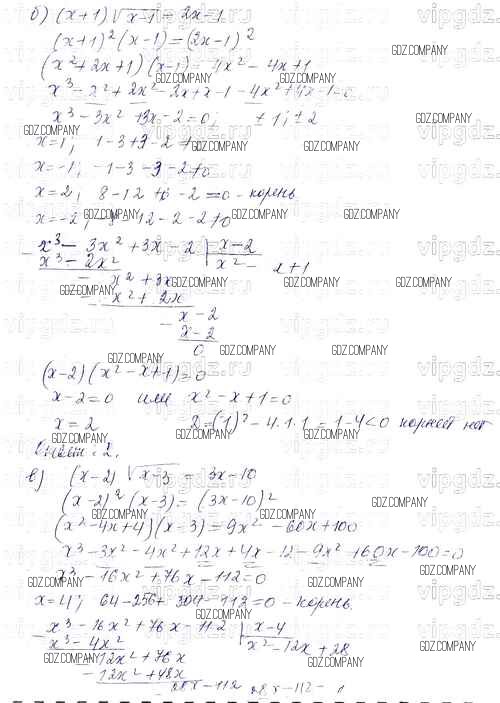 б) (x+1)√x-1 = 2x-1
(x+1)²(x-1) = (2x-1)²
(x²+2x+1)(x-1) = 4x²-4x+1
x³-x²+2x²-2x+x-1-4x²+4x-1=0
x³-3x²+3x-2=0; ±1; ±2
x=1; 1-3+3-2≠0
x=-1; -1-3-3-2≠0
x=2; 8-12+6-2=0 - корень
x=-2; -8-12-2-2≠0
x³-3x²+3x-2 | x-2
x³-2x² | x²-x+1
-x²+3x
-x²+2x
x-2
x-2
0
(x-2)(x²-x+1)=0
x-2=0 или x²-x+1=0
x=2 D=(-1)²-4·1·1=1-4<0 корней нет
Ответ: 2.
в) (x-2)√x-3 = 3x-10
(x-2)²(x-3) = (3x-10)²
(x²-4x+4)(x-3) = 9x²-60x+100
x³-3x²-4x²+12x+4x-12-9x²+60x-100=0
x³-16x²+76x-112=0
x=4; 64-256+304-112=0 - корень.
x³-16x²+76x-112 | x-4
x³-4x² | x²-12x+28
-12x²+76x
-12x²+48x
28x-112